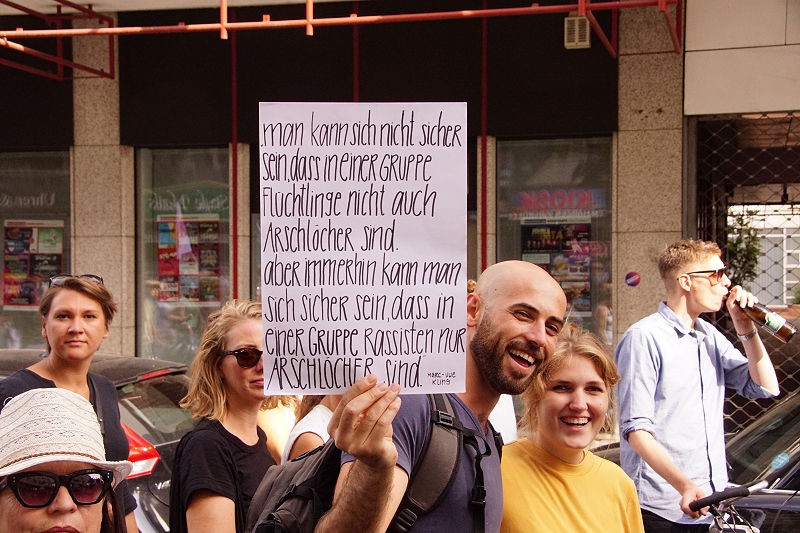 „man kann sich nicht sicher
sein, dass in einer GRUPPE
Flüchtlinge nicht auch
Arschlöcher sind.
aber immerhin kann man
sich sicher sein, dass in
einer GRUPPE Rassisten nur
ARSCHLÖCHER sind."
MARC-UWE
KLING
Uhren
KIOSK